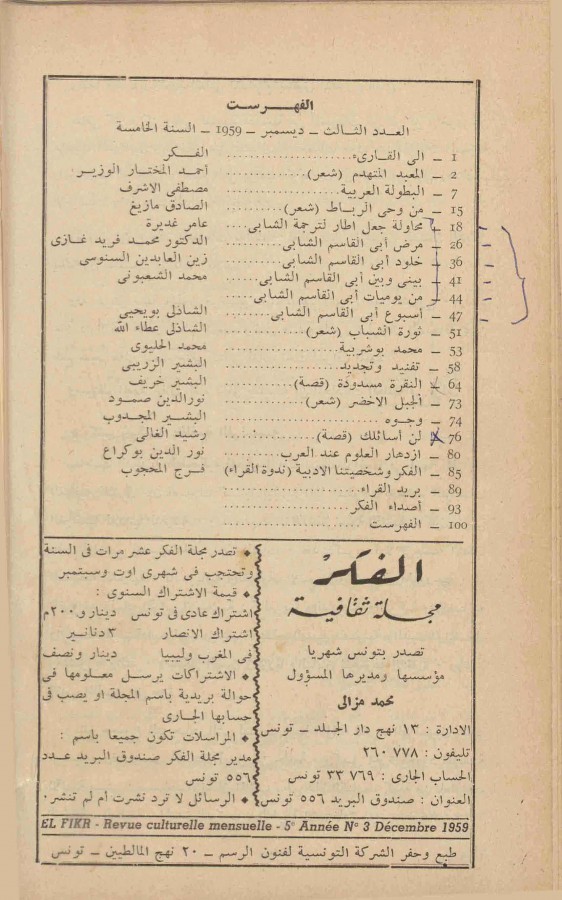 الفهـــرست
العدد الثالث ــ ديسمبر ــ 1959 ــ السنة الخامسة
1 ــ الى القارىء .......... الفكر
2 ــ المعبد المتهدم (شعر) .......... أحمد المختار الوزير
7 ــ البطولة العربية .......... مصطفى الاشرف
15 ــ من وحى الرباط (شعر) .......... الصادق مازيغ
18 ــ محاولة جعل اطار لترجمة الشابى .......... عامر غديرة
26 ــ مرض أبى القاسم الشابى .......... الدكتور محمد فريد غازى
36 ــ خلود أبى القاسم الشابى .......... زين العابدين السنوسى
41 ــ بينى وبين أبى القاسم الشابى .......... محمد الشعبونى
44 ــ من يوميات أبى القاسم الشابى ..........
47 ــ أسبوع أبى القاسم الشابى .......... الشاذلى بويحيى
51 ــ ثورة الشباب (شعر) .......... الشاذلى عطاء الله
53 ــ محمد بوشربية .......... محمد الحليوى
58 ــ تفنيد وتجديد .......... البشير الزريبى
64 ــ النقرة مسدودة (قصة) .......... البشير خريف
73 ــ الجبل الاخضر (شعر) .......... نورالدين صمود
74 ــ وجوه .......... البشير المجدوب
76 ــ لن أسائلك (قصة) .......... رشيد الغالى
80 ــ ازدهار العلوم عند العرب .......... نور الدين بوكراع
85 ــ الفكر وشخصيتنا الادبية (ندوة القراء) .......... فرج المحجوب
89 ــ بريد القراء ..........
93 ــ أصداء الفكر ..........
100 ــ الفهرست ..........
الفكر
مجلة ثقافية
تصدر بتونس شهريا
مؤسسها ومديرها المسؤول
محمد مزالى
الادارة : ١٣ نهج دار الجلد ــ تونس
تليفون : ٢٦٠٧٧٨
الحساب الجارى : ٣٣٧٦٩ تونس
العنوان : صندوق البريد ٥٥٦ تونس
• تصدر مجلة الفكر عشر مرات فى السنة
وتحتجب فى شهرى اوت وسبتمبر
• قيمة الاشتراك السنوى :
اشتراك عادى فى تونس دينار و٢٠٠م
اشتراك الانصار ٣ دنانير
فى المغرب وليبيا دينار ونصف
• الاشتراكات يرسل معلومها فى
حوالة بريدية باسم المجلة او يصب فى
حسابها الجارى
• المراسلات تكون جميعا باسم :
مدير مجلة الفكر صندوق البريد عدد
٥٥٦ تونس
• الرسائل لا ترد نشرت أم لم تنشر.
EL FIKR - Revue culturelle mensuelle - 5e Année No 3 Décembre 1959
طبع وحفر الشركة التونسية لفنون الرسم ــ ٢٠ نهج المالطيين ــ تونس